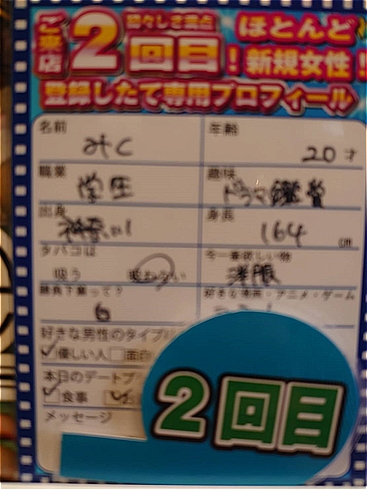 ご来店
2回目!
ほとんど
新規女性!!
登録したて専用プロフィール
名前
みく
年齢
20才
職業
学生
趣味
ドラマ鑑賞
出身
神奈川
身長
164cm
タバコは
吸う 吸わない
今一番欲しい物
洋服
6
好きな映画・アニメ・ゲーム
好きな男性のタイプは
優しい人 面白
本日のデートプ
食事
メッセージ
2回目